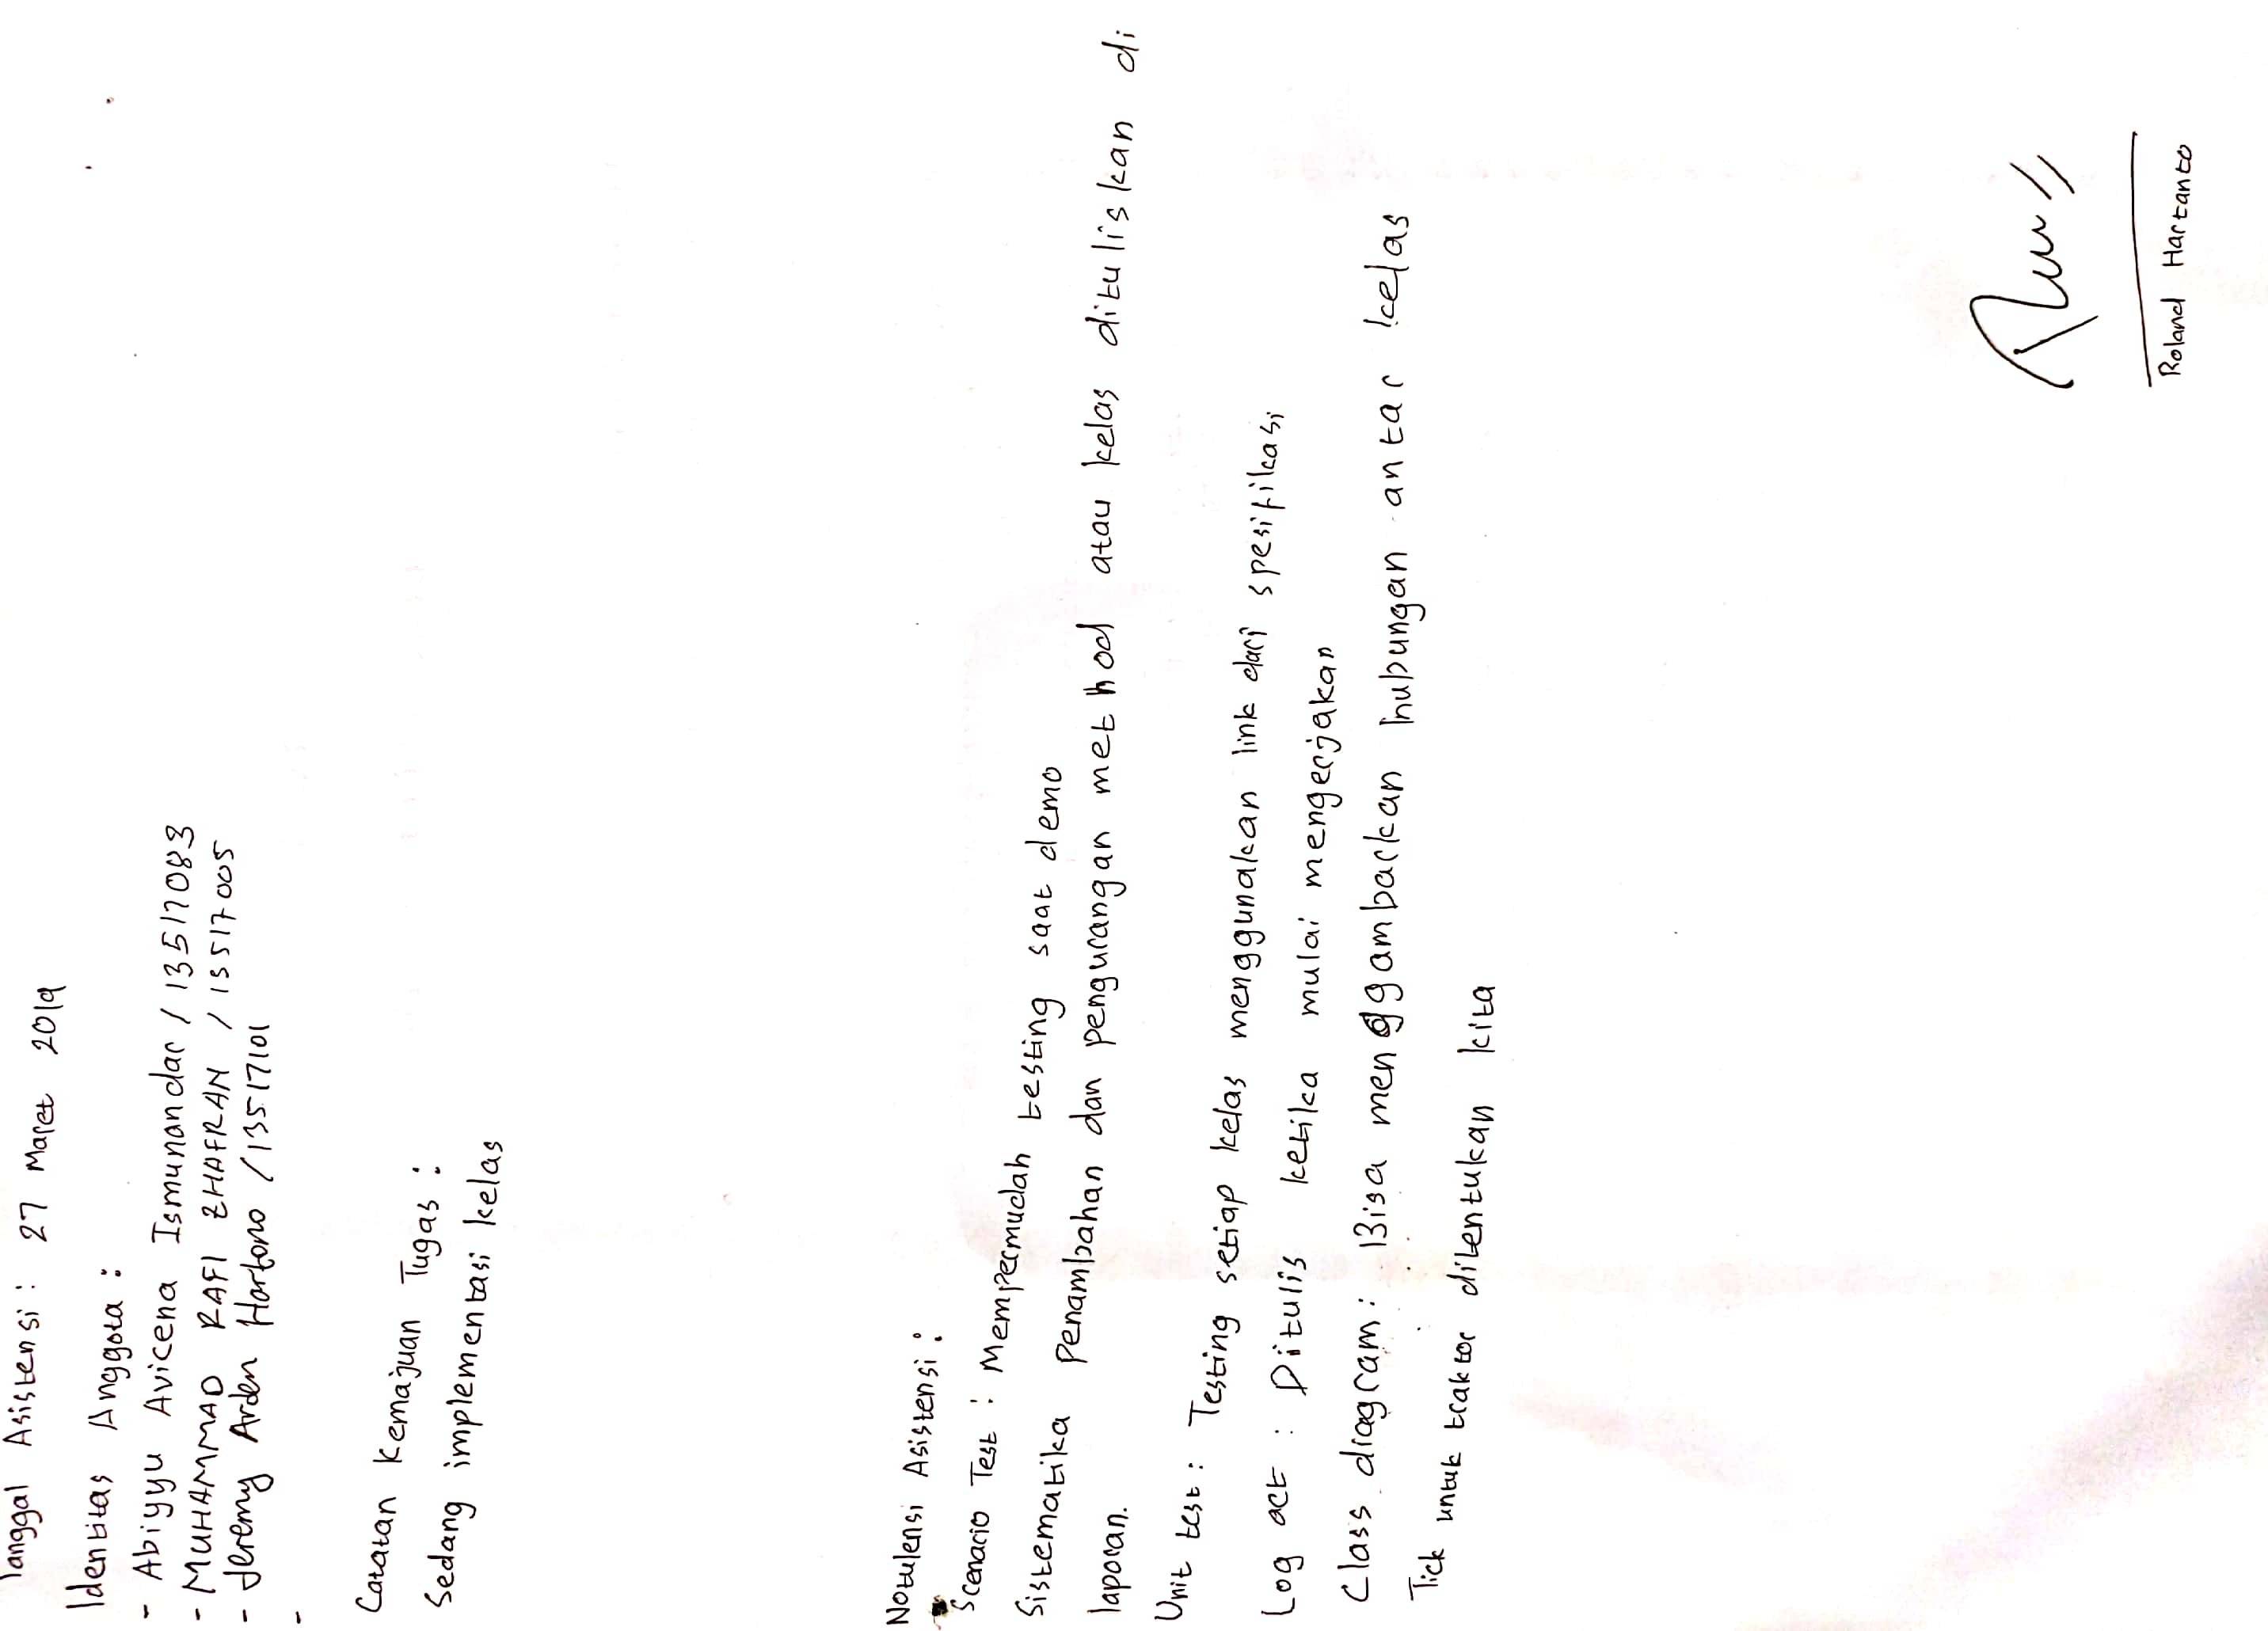 Tanggal Asistensi : 27 Maret 2019
Identitas Anggota :
- Abiyyu Avicena Ismunandar / 13517083
- MUHAMMAD RAFI ZHAFRAN / 13517005
- Jeremy Arden Hartono / 13517101
-
Catatan Kemajuan Tugas :
Sedang implementasi kelas
Notulensi Asistensi :
Scenario Test : Mempermudah testing saat demo
Sistematika Penambahan dan pengurangan method atau kelas dituliskan di
laporan.
Unit test : Testing setiap kelas menggunakan link dari spesifikasi
Log act : Ditulis ketika mulai mengerjakan
Class diagram : Bisa menggambarkan hubungan antar kelas
Tick untuk traktor ditentukan kita
Roland Hartanto